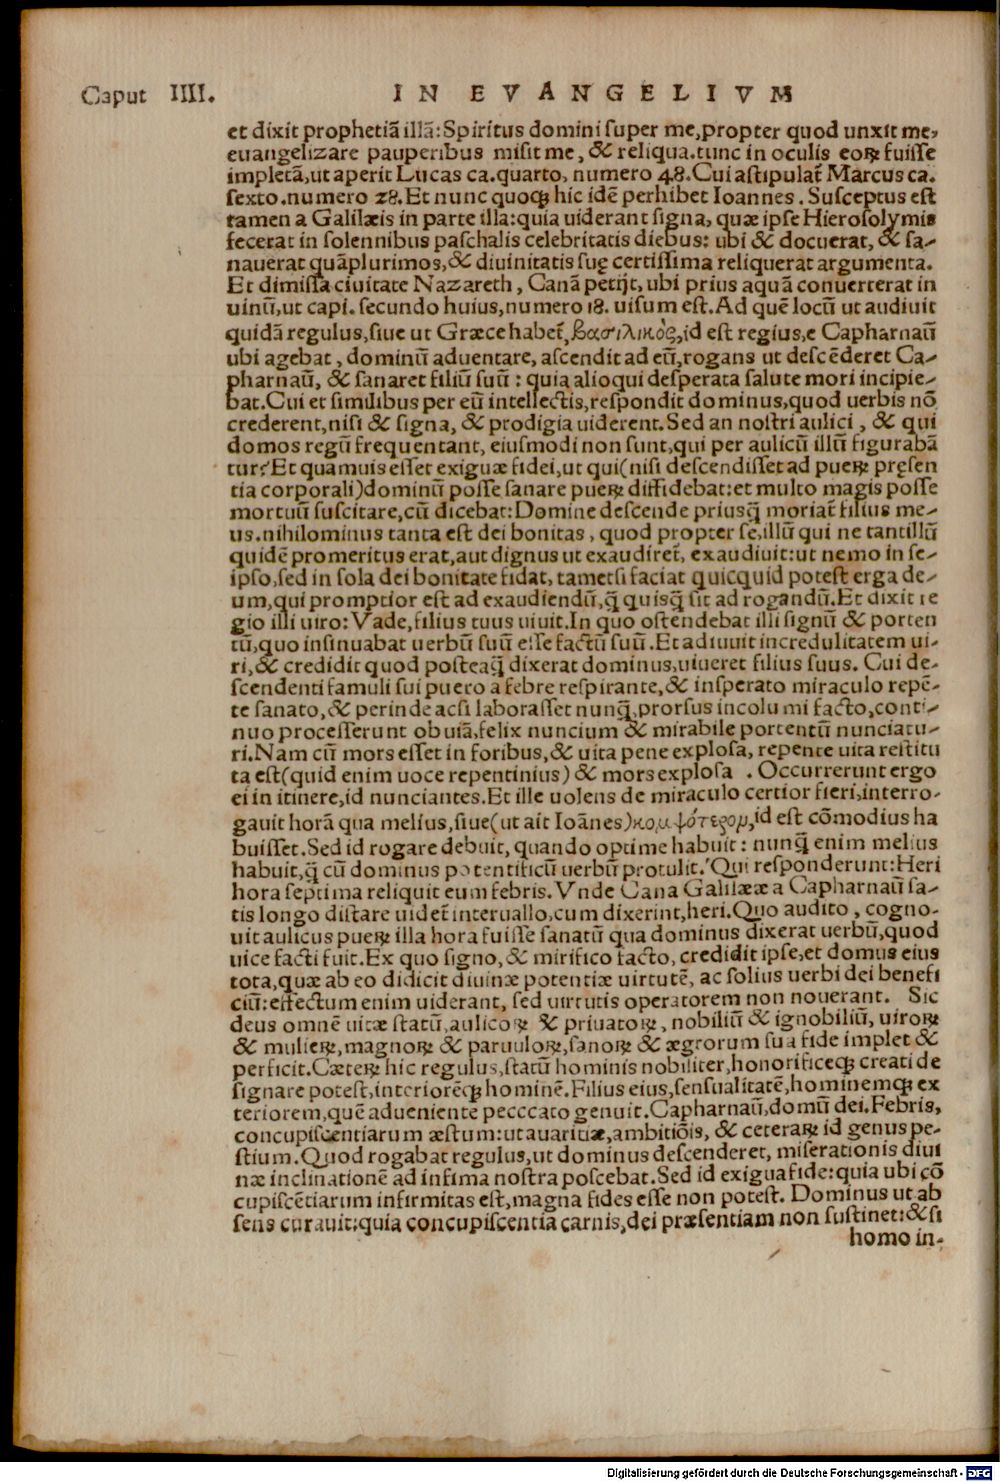 Caput IIII. IN EVANGELIVM
et dixit prophetiã illã: Spiritus domini super me, propter quod unxit me,
euangelizare pauperibus misit me, & reliqua. tunc in oculis eoꝝ fuisse
impletã, ut aperit Lucas ca. quarto, numero 48. Cui astipulat᷑ Marcus ca.
sexto. numero 28. Et nunc quoqꝫ hic idẽ perhibet Ioannes. Susceptus est
tamen a Galilæis in parte illa: quia uiderant signa, quæ ipse Hierosolymis
fecerat in solennibus paschalis celebritatis diebus: ubi & docuerat, & sa-
nauerat quãplurimos, & diuinitatis suę certissima reliquerat argumenta.
Et dimissa ciuitate Nazareth, Canã petijt, ubi prius aquã conuerterat in
uinũ, ut capi. secundo huius, numero 18. uisum est. Ad quẽ locũ ut audiuit
quidã regulus, siue ut Græce habet᷑, βασιλικὸς, id est regius, e Capharnaũ
ubi agebat, dominũ aduentare, ascendit ad eũ, rogans ut descẽderet Ca-
pharnaũ, & sanaret filiũ suũ: quia alioqui desperata salute mori incipie-
bat. Cui et similibus per eũ intellectis, respondit dominus, quod uerbis nõ
crederent, nisi & signa, & prodigia uiderent. Sed an nostri aulici, & qui
domos regũ frequentant, eiusmodi non sunt, qui per aulicũ illũ figurabã
tur? Et quamuis esset exiguæ fidei, ut qui (nisi descendisset ad pueꝝ pręsen
tia corporali) dominũ posse sanare pueꝝ diffidebat: et multo magis posse
mortuũ suscitare, cũ dicebat: Domine descende priusq̃ moriat᷑ filius me-
us. nihilominus tanta est dei bonitas, quod propter se, illũ qui ne tantillũ
quidẽ promeritus erat, aut dignus ut exaudiret᷑, exaudiuit: ut nemo in se-
ipso, sed in sola dei bonitate fidat, tametsi faciat quicquid potest erga de-
um, qui promptior est ad exaudiendũ, q̃ quisq̃ sit ad rogandũ. Et dixit re
gio illi uiro: Vade, filius tuus uiuit. In quo ostendebat illi signũ & porten
tũ, quo insinuabat uerbũ suũ esse factũ suũ. Et adiuuit incredulitatem ui-
ri, & credidit quod posteaq̃ dixerat dominus, uiueret filius suus. Cui de-
scendenti famuli sui puero a febre respirante, & insperato miraculo repẽ-
te sanato, & perinde acsi laborasset nunq̃, prorsus incolumi facto, conti-
nuo processerunt obuiã, felix nuncium & mirabile portentũ nunciatu-
ri. Nam cũ mors esset in foribus, & uita pene explosa, repente uita restitu
ta est (quid enim uoce repentinius) & mors explosa. Occurrerunt ergo
ei in itinere, id nunciantes. Et ille uolens de miraculo certior fieri, interro-
gauit horã qua melius, siue (ut ait Ioãnes) κομψότερον, id est cõmodius ha
buisset. Sed id rogare debuit, quando optime habuit: nunq̃ enim melius
habuit, q̃ cũ dominus potentificũ uerbũ protulit. Qui responderunt: Heri
hora septima reliquit eum febris. Vnde Cana Galilææ a Capharnaũ sa-
tis longo distare uidet᷑ interuallo, cum dixerint, heri. Quo audito, cogno-
uit aulicus pueꝝ illa hora fuisse sanatũ qua dominus dixerat uerbũ, quod
uice facti fuit. Ex quo signo, & mirifico facto, credidit ipse, et domus eius
tota, quæ ab eo didicit diuinæ potentiæ uirtutẽ, ac solius uerbi dei benefi
ciũ: effectum enim uiderant, sed uirtutis operatorem non nouerant. Sic
deus omnẽ uitæ statũ, aulicoꝝ & priuatoꝝ, nobiliũ & ignobiliũ, uiroꝝ
& mulieꝝ, magnoꝝ & paruuloꝝ, sanoꝝ & ægrorum sua fide implet &
perficit. Cæteꝝ hic regulus, statũ hominis nobiliter, honorificeqꝫ creati de
signare potest, interiorẽqꝫ hominẽ. Filius eius, sensualitatẽ, hominemqꝫ ex
teriorem, quẽ adueniente pecccato genuit. Capharnaũ, domũ dei. Febris,
concupiscentiarum æstum: ut auaritiæ, ambitiõis, & ceteraꝝ id genus pe-
stium. Quod rogabat regulus, ut dominus descenderet, miserationis diui
næ inclinationẽ ad infima nostra poscebat. Sed id exigua fide: quia ubi cõ
cupiscẽtiarum infirmitas est, magna fides esse non potest. Dominus ut ab
sens curauit: quia concupiscentia carnis, dei præsentiam non sustinet: & si
homo in-
Digitalisierung gefördert durch die Deutsche Forschungsgemeinschaft - DFG